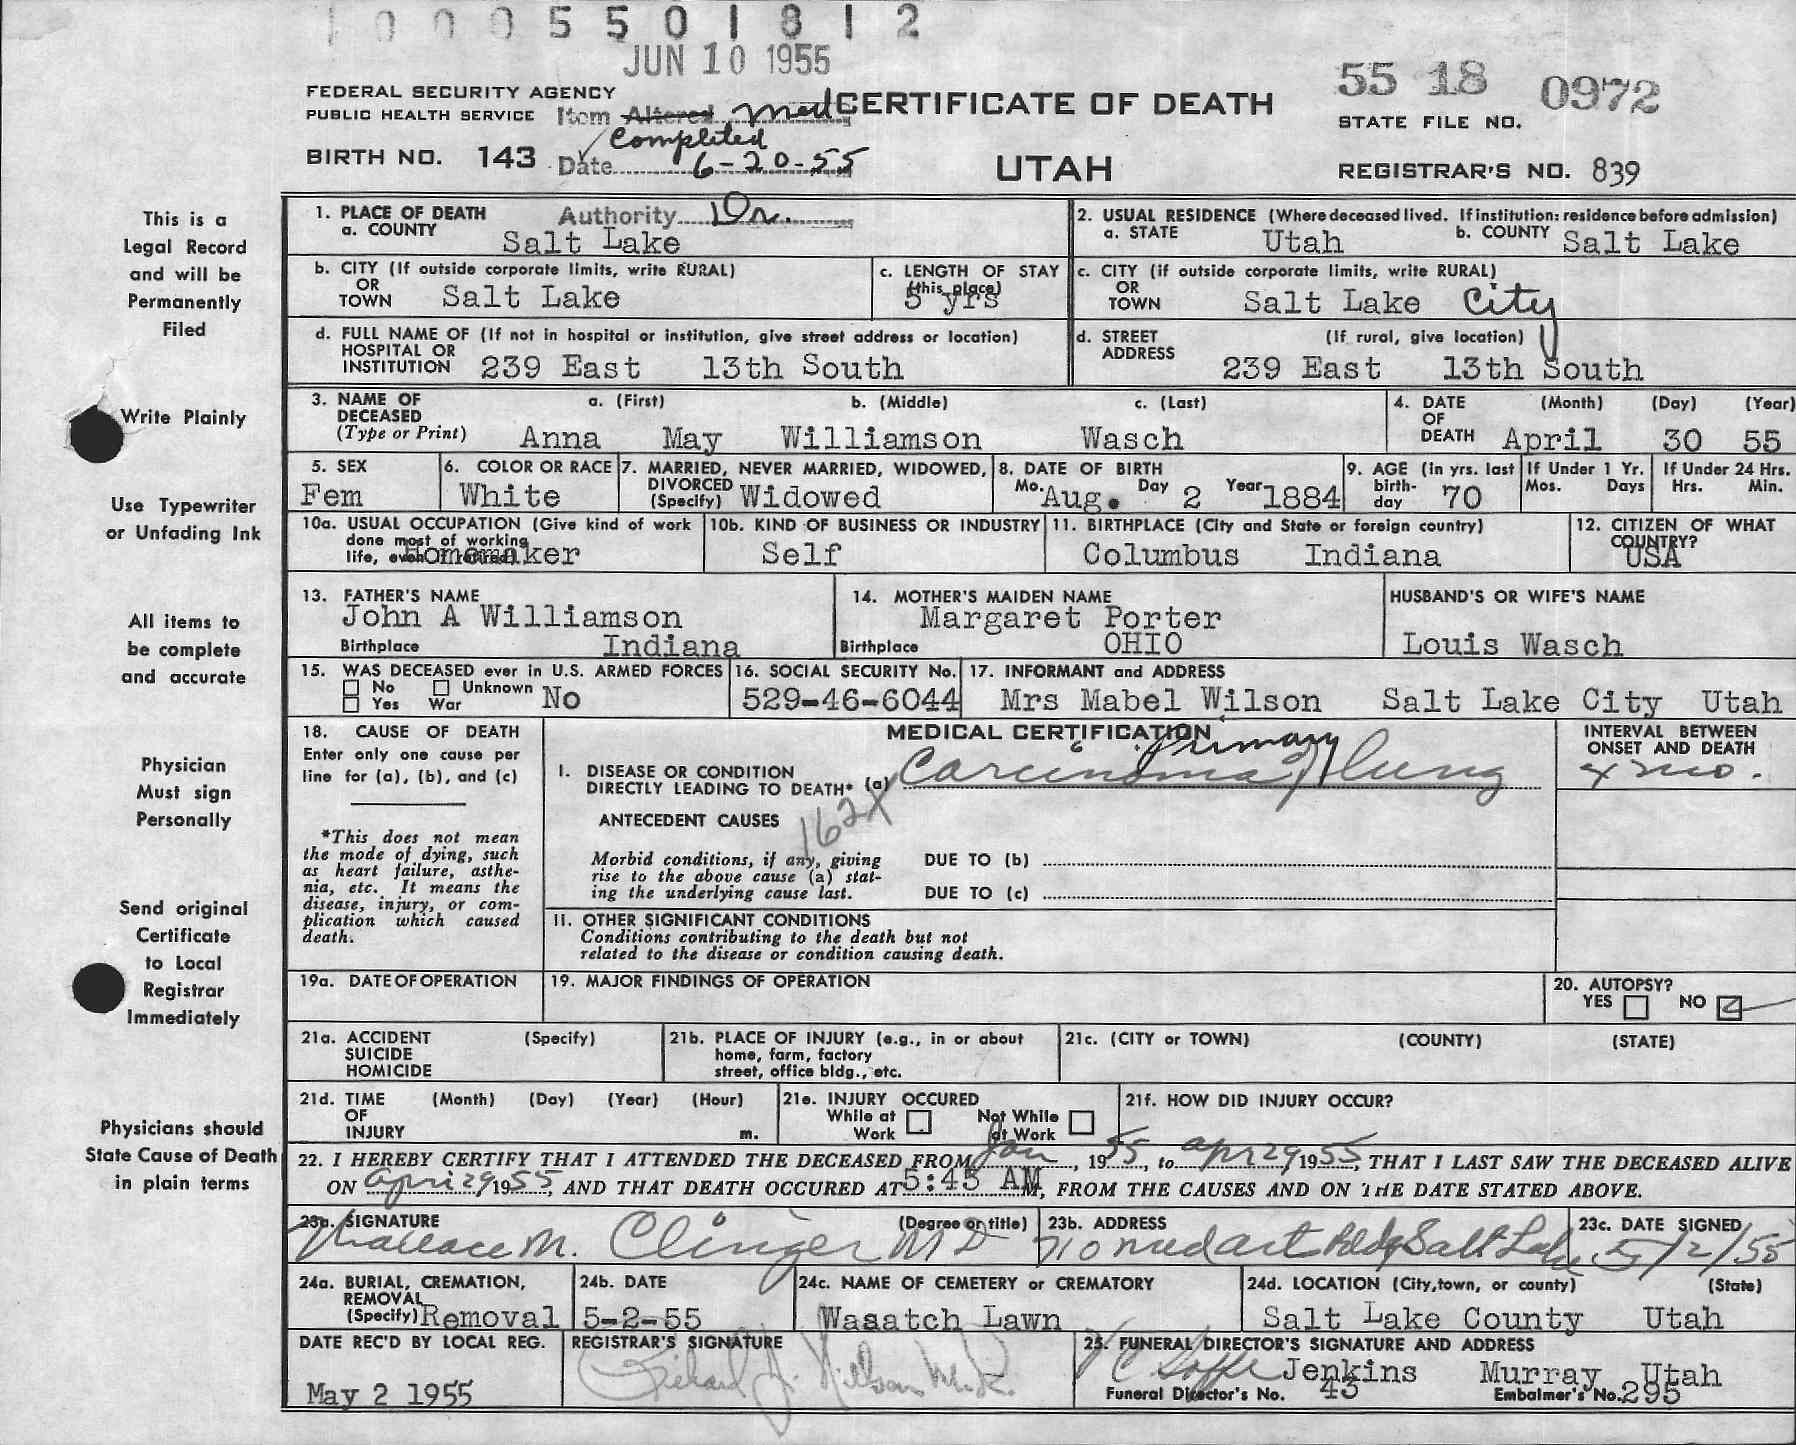 1 0 0 0 5 5 0 1 8 1 2
JUN 10 1955
55 18 0972
FEDERAL SECURITY AGENCY
PUBLIC HEALTH SERVICE
Item Altered Med
Completed
CERTIFICATE OF DEATH
STATE FILE NO.
BIRTH NO. 143
Date 6-20-55
UTAH
REGISTRAR'S NO. 839
This is a
Legal Record
and will be
Permanently
Filed
Write Plainly
Use Typewriter
or Unfading Ink
All items to
be complete
and accurate
Physician
Must sign
Personally
Send original
Certificate
to Local
Registrar
Immediately
Physicians should
State Cause of Death
in plain terms
1. PLACE OF DEATH
Authority Dr.
a. COUNTY
Salt Lake
2. USUAL RESIDENCE (Where deceased lived. If institution: residence before admission)
a. STATE Utah b. COUNTY Salt Lake
b. CITY (If outside corporate limits, write RURAL)
OR
TOWN Salt Lake
c. LENGTH OF STAY
(this place)
5 yrs
c. CITY (if outside corporate limits, write RURAL)
OR
TOWN Salt Lake City
d. FULL NAME OF (If not in hospital or institution, give street address or location)
HOSPITAL OR
INSTITUTION 239 East 13th South
d. STREET (If rural, give location)
ADDRESS
239 East 13th South
3. NAME OF DECEASED
(Type or Print)
a. (First) b. (Middle) c. (Last)
Anna May Williamson Wasch
4. DATE OF DEATH (Month) (Day) (Year)
April 30 55
5. SEX
Fem
6. COLOR OR RACE
White
7. MARRIED, NEVER MARRIED, WIDOWED,
DIVORCED
(Specify) Widowed
8. DATE OF BIRTH
Mo. Aug. Day 2 Year 1884
9. AGE (In yrs. last
birth-
day 70
If Under 1 Yr.
Mos. Days
If Under 24 Hrs.
Hrs. Min.
10a. USUAL OCCUPATION (Give kind of work
done most of working
life, even if retired)
Homemaker
10b. KIND OF BUSINESS OR INDUSTRY
Self
11. BIRTHPLACE (City and State or foreign country)
Columbus Indiana
12. CITIZEN OF WHAT
COUNTRY?
USA
13. FATHER'S NAME
John A Williamson
Birthplace Indiana
14. MOTHER'S MAIDEN NAME
Margaret Porter
Birthplace OHIO
HUSBAND'S OR WIFE'S NAME
Louis Wasch
15. WAS DECEASED ever in U.S. ARMED FORCES
No Unknown No
Yes War
16. SOCIAL SECURITY No.
529-46-6044
17. INFORMANT and ADDRESS
Mrs Mabel Wilson Salt Lake City Utah
18. CAUSE OF DEATH
Enter only one cause per
line for (a), (b), and (c)
*This does not mean
the mode of dying, such
as heart failure, asthe-
nia, etc. It means the
disease, injury, or com-
plication which caused
death.
MEDICAL CERTIFICATION
INTERVAL BETWEEN
ONSET AND DEATH
Primary
I. DISEASE OR CONDITION
DIRECTLY LEADING TO DEATH* (a) Carcinoma of Lung
mo.
162X
ANTECEDENT CAUSES
Morbid conditions, if any, giving
rise to the above cause (a) stat-
ing the underlying cause last.
DUE TO (b)
DUE TO (c)
II. OTHER SIGNIFICANT CONDITIONS
Conditions contributing to the death but not
related to the disease or condition causing death.
19a. DATE OF OPERATION
19. MAJOR FINDINGS OF OPERATION
20. AUTOPSY?
YES NO
21a. ACCIDENT (Specify)
SUICIDE
HOMICIDE
21b. PLACE OF INJURY (e.g., in or about
home, farm, factory
street, office bldg., etc.
21c. (CITY or TOWN) (COUNTY) (STATE)
21d. TIME (Month) (Day) (Year) (Hour)
OF
INJURY m.
21e. INJURY OCCURED
While at Work
Not While at Work
21f. HOW DID INJURY OCCUR?
22. I HEREBY CERTIFY THAT I ATTENDED THE DECEASED FROM Jan, 1955, to Apr 29, 1955, THAT I LAST SAW THE DECEASED ALIVE
ON April 29, 1955, AND THAT DEATH OCCURED AT 5:45 AM, FROM THE CAUSES AND ON THE DATE STATED ABOVE.
23a. SIGNATURE (Degree or title)
Wallace M. Clinger MD
23b. ADDRESS
710 Med Art Bldg Salt Lake
23c. DATE SIGNED
5/2/55
24a. BURIAL, CREMATION,
REMOVAL
(Specify) Removal
24b. DATE
5-2-55
24c. NAME OF CEMETERY or CREMATORY
Wasatch Lawn
24d. LOCATION (City, town, or county) (State)
Salt Lake County Utah
DATE REC'D BY LOCAL REG.
May 2 1955
REGISTRAR'S SIGNATURE
Richard J. Nelson M.D.
25. FUNERAL DIRECTOR'S SIGNATURE AND ADDRESS
Jenkins Murray Utah
Funeral Director's No. 43 Embalmer's No. 295